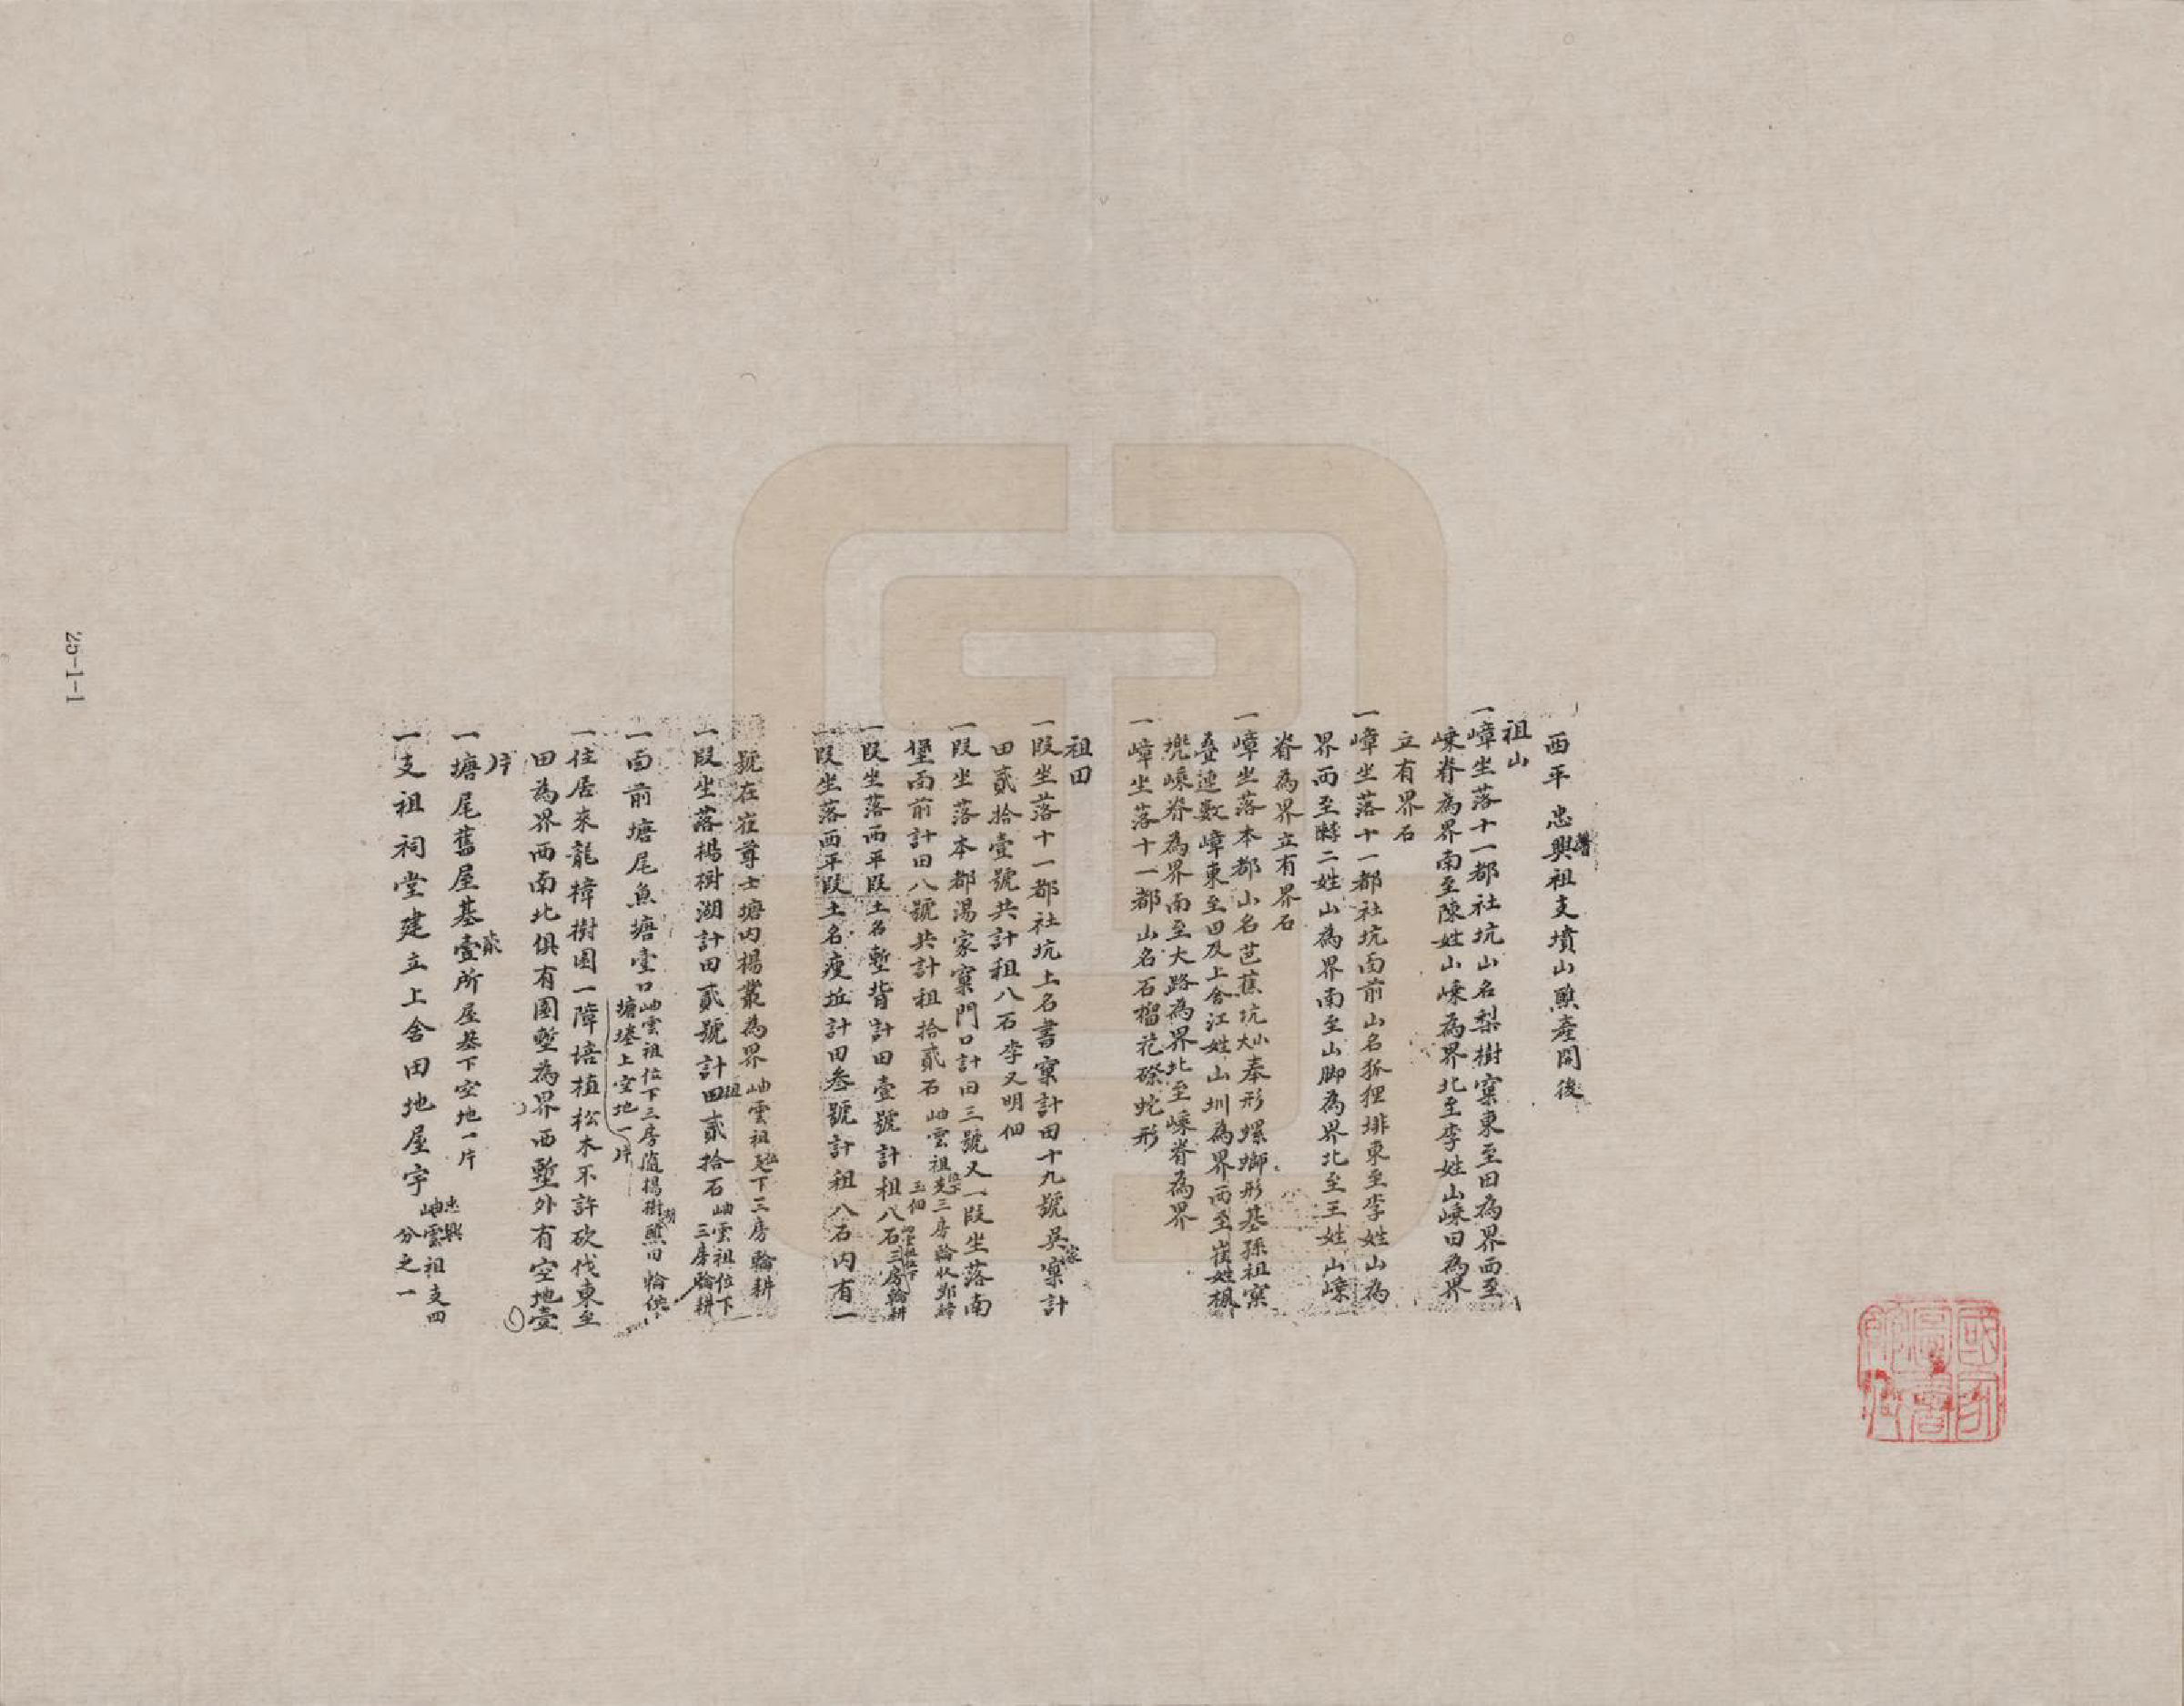 西平忠興祖支墳山照產開後
祖山
一嶂坐落十一都社坑山名梨樹窠東至田為界西至
嵊脊為界南至陳姓山嵊為界北至李姓山嵊田為界
立有界石
一嶂坐落十一都社坑面前山名狐狸排東至李姓山為
界西至二姓山為界南至山脚為界北至王姓山嵊
脊為界立有界石
一嶂坐落本都山名芭蕉坑大小奉形螺螄形基孫祖窠
叠連數嶂東至田及上舍江姓山圳為界西至崔姓楓
兠嵊脊為界南至大路為界北至嵊脊為界
一嶂坐落十一都山名石榴花磜蛇形
祖田
一段坐落十一都社坑土名書窠計田十九號吳家窠計
田貳拾壹號共計租八石李又明佃
一段坐落本都湯家窠門口計田三號又一段坐落南
堡面前計田八號共計租拾貳石岫雲祖支三房輪收鄭
玉佃
一段坐落西平段土名塹背計田壹號計租八石三房輪耕
一段坐落西平段土名瘦坵計田叁號計租八石內有一
號在崔尊士塘內楊叢為界岫雲祖位下三房輪耕
一段坐落楊樹湖計田貳號計田租貳拾石岫雲祖位下
三房輪耕
一面前塘尾魚塘壹口岫雲祖位下三房隨楊樹湖照田輪供
塘塅上空地一片
一住居來龍樟樹園一障培植松木不許砍伐東至
田為界西南北俱有園塹為界西塹外有空地壹
片
一塘尾舊屋基壹貳所屋基下空地一片
一支祖祠堂建立上舍田地屋宇忠興岫雲祖支四
分之一
25-1-1
國家圖書館藏